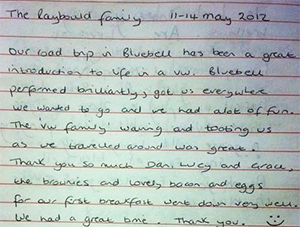 The Raybould family 11-14 may 2012
Our road trip in Bluebell has been a great
introduction to life in a vw. Bluebell
performed brilliantly, got us everywhere
we wanted to go and we had alot of fun.
The 'vw family' waving and tooting us
as we travelled around was great.
Thank you so much Dan, Lucy and Grace,
the brownies and lovely bacon and eggs
for our first breakfast went down very well.
We had a great time. Thank you.